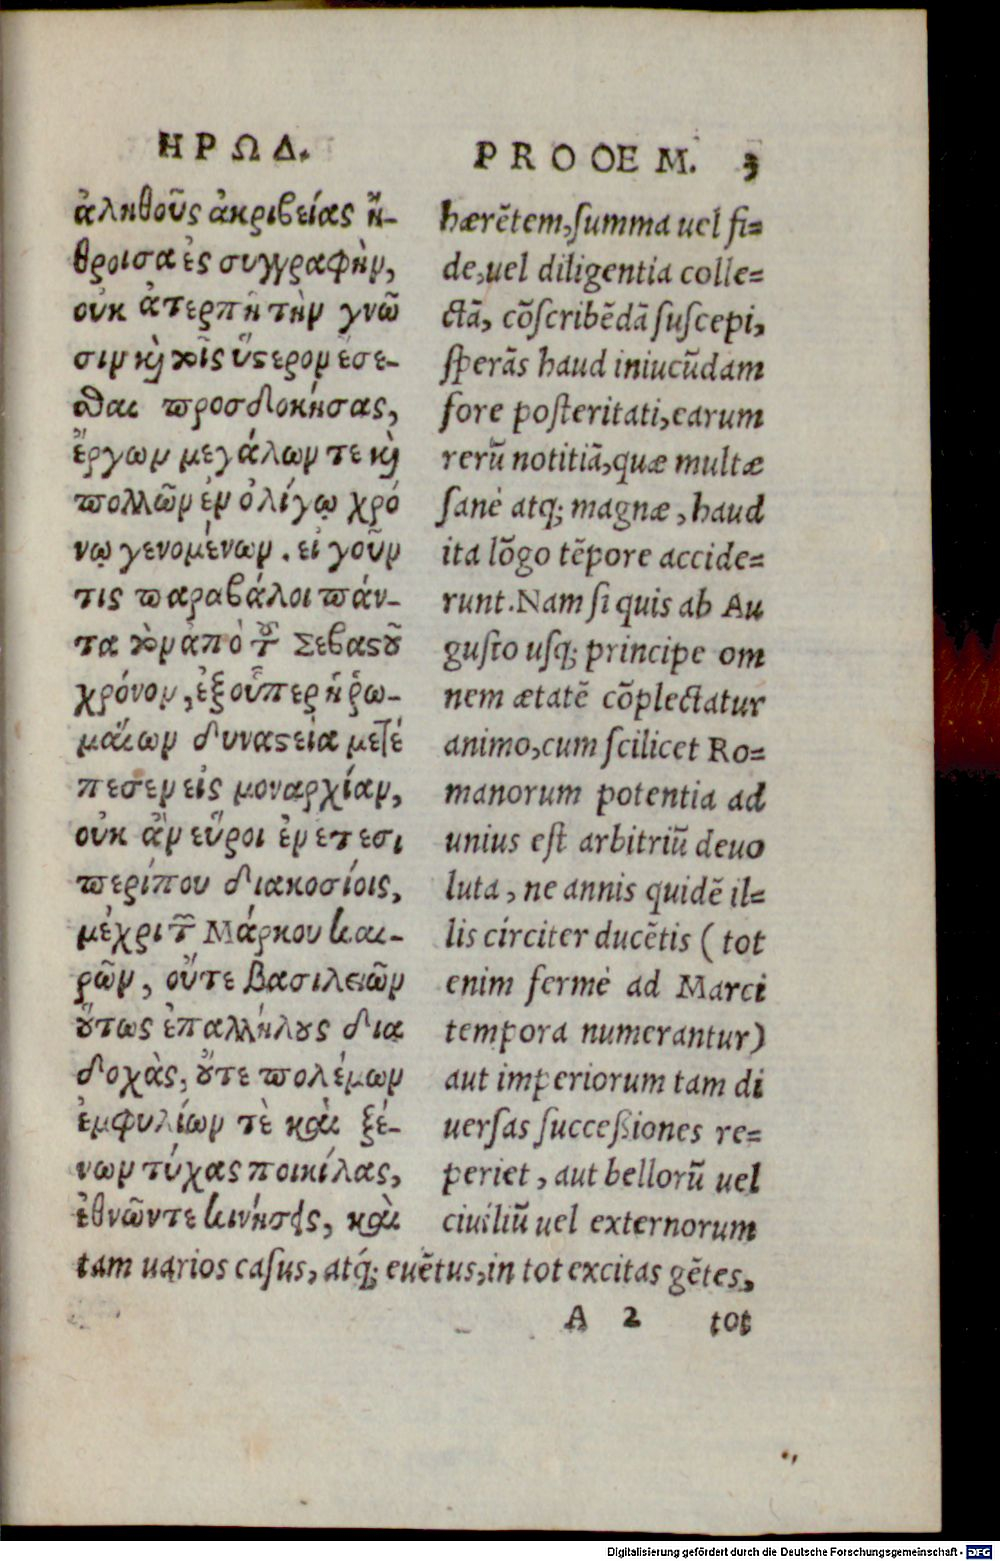 ΗΡΩΔ.
ἀληθοῦς ἀκριβείας ἤ-
θροισα ἐς συγγραφὴν,
οὐκ ἀτερπῆ τὴν γνῶ
σιν καὶ τοῖς ὕστερον ἔσε-
σθαι προσδοκήσας,
ἔργων μεγάλων τε καὶ
πολλῶν ἐν ὀλίγῳ χρό
νῳ γενομένων. εἰ γοῦν
τις παραβάλοι πάν-
τα τὸν ἀπὸ τοῦ Σεβαστοῦ
χρόνον, ἐξ οὗπερ ἡ ῥω-
μαίων δυναστεία μετέ
πεσεν εἰς μοναρχίαν,
οὐκ ἂν εὕροι ἐν ετεσι
περίπου διακοσίοις,
μέχρι τῶν Μάρκου και-
ρῶν, οὔτε βασιλειῶν
οὕτως ἐπαλλήλους δια
δοχὰς, οὔτε πολέμων
ἐμφυλίων τὲ καὶ ξέ-
νων τύχας ποικίλας,
ἐθνῶν τε κινήσεις, καὶ
PROOEM. 3
hærẽtem, summa uel fi=
de, uel diligentia colle=
ctã, cõscribẽdã suscepi,
sperãs haud iniucũdam
fore posteritati, earum
rerũ notitiã, quæ multæ
sanè atq; magnæ, haud
ita lõgo tẽpore accide=
runt. Nam si quis ab Au
gusto usq; principe om
nem ætatẽ cõplectatur
animo, cum scilicet Ro=
manorum potentia ad
unius est arbitriũ deuo
luta, ne annis quidẽ il=
lis círciter ducẽtis (tot
enim fermè ad Marci
tempora numerantur)
aut imperiorum tam di
uersas successiones re=
periet, aut bellorũ uel
ciuiliũ uel externorum
tam uarios casus, atq́; euẽtus, in tot excitas gẽtes,
A 2 tot
Digitalisierung gefördert durch die Deutsche Forschungsgemeinschaft - DFG